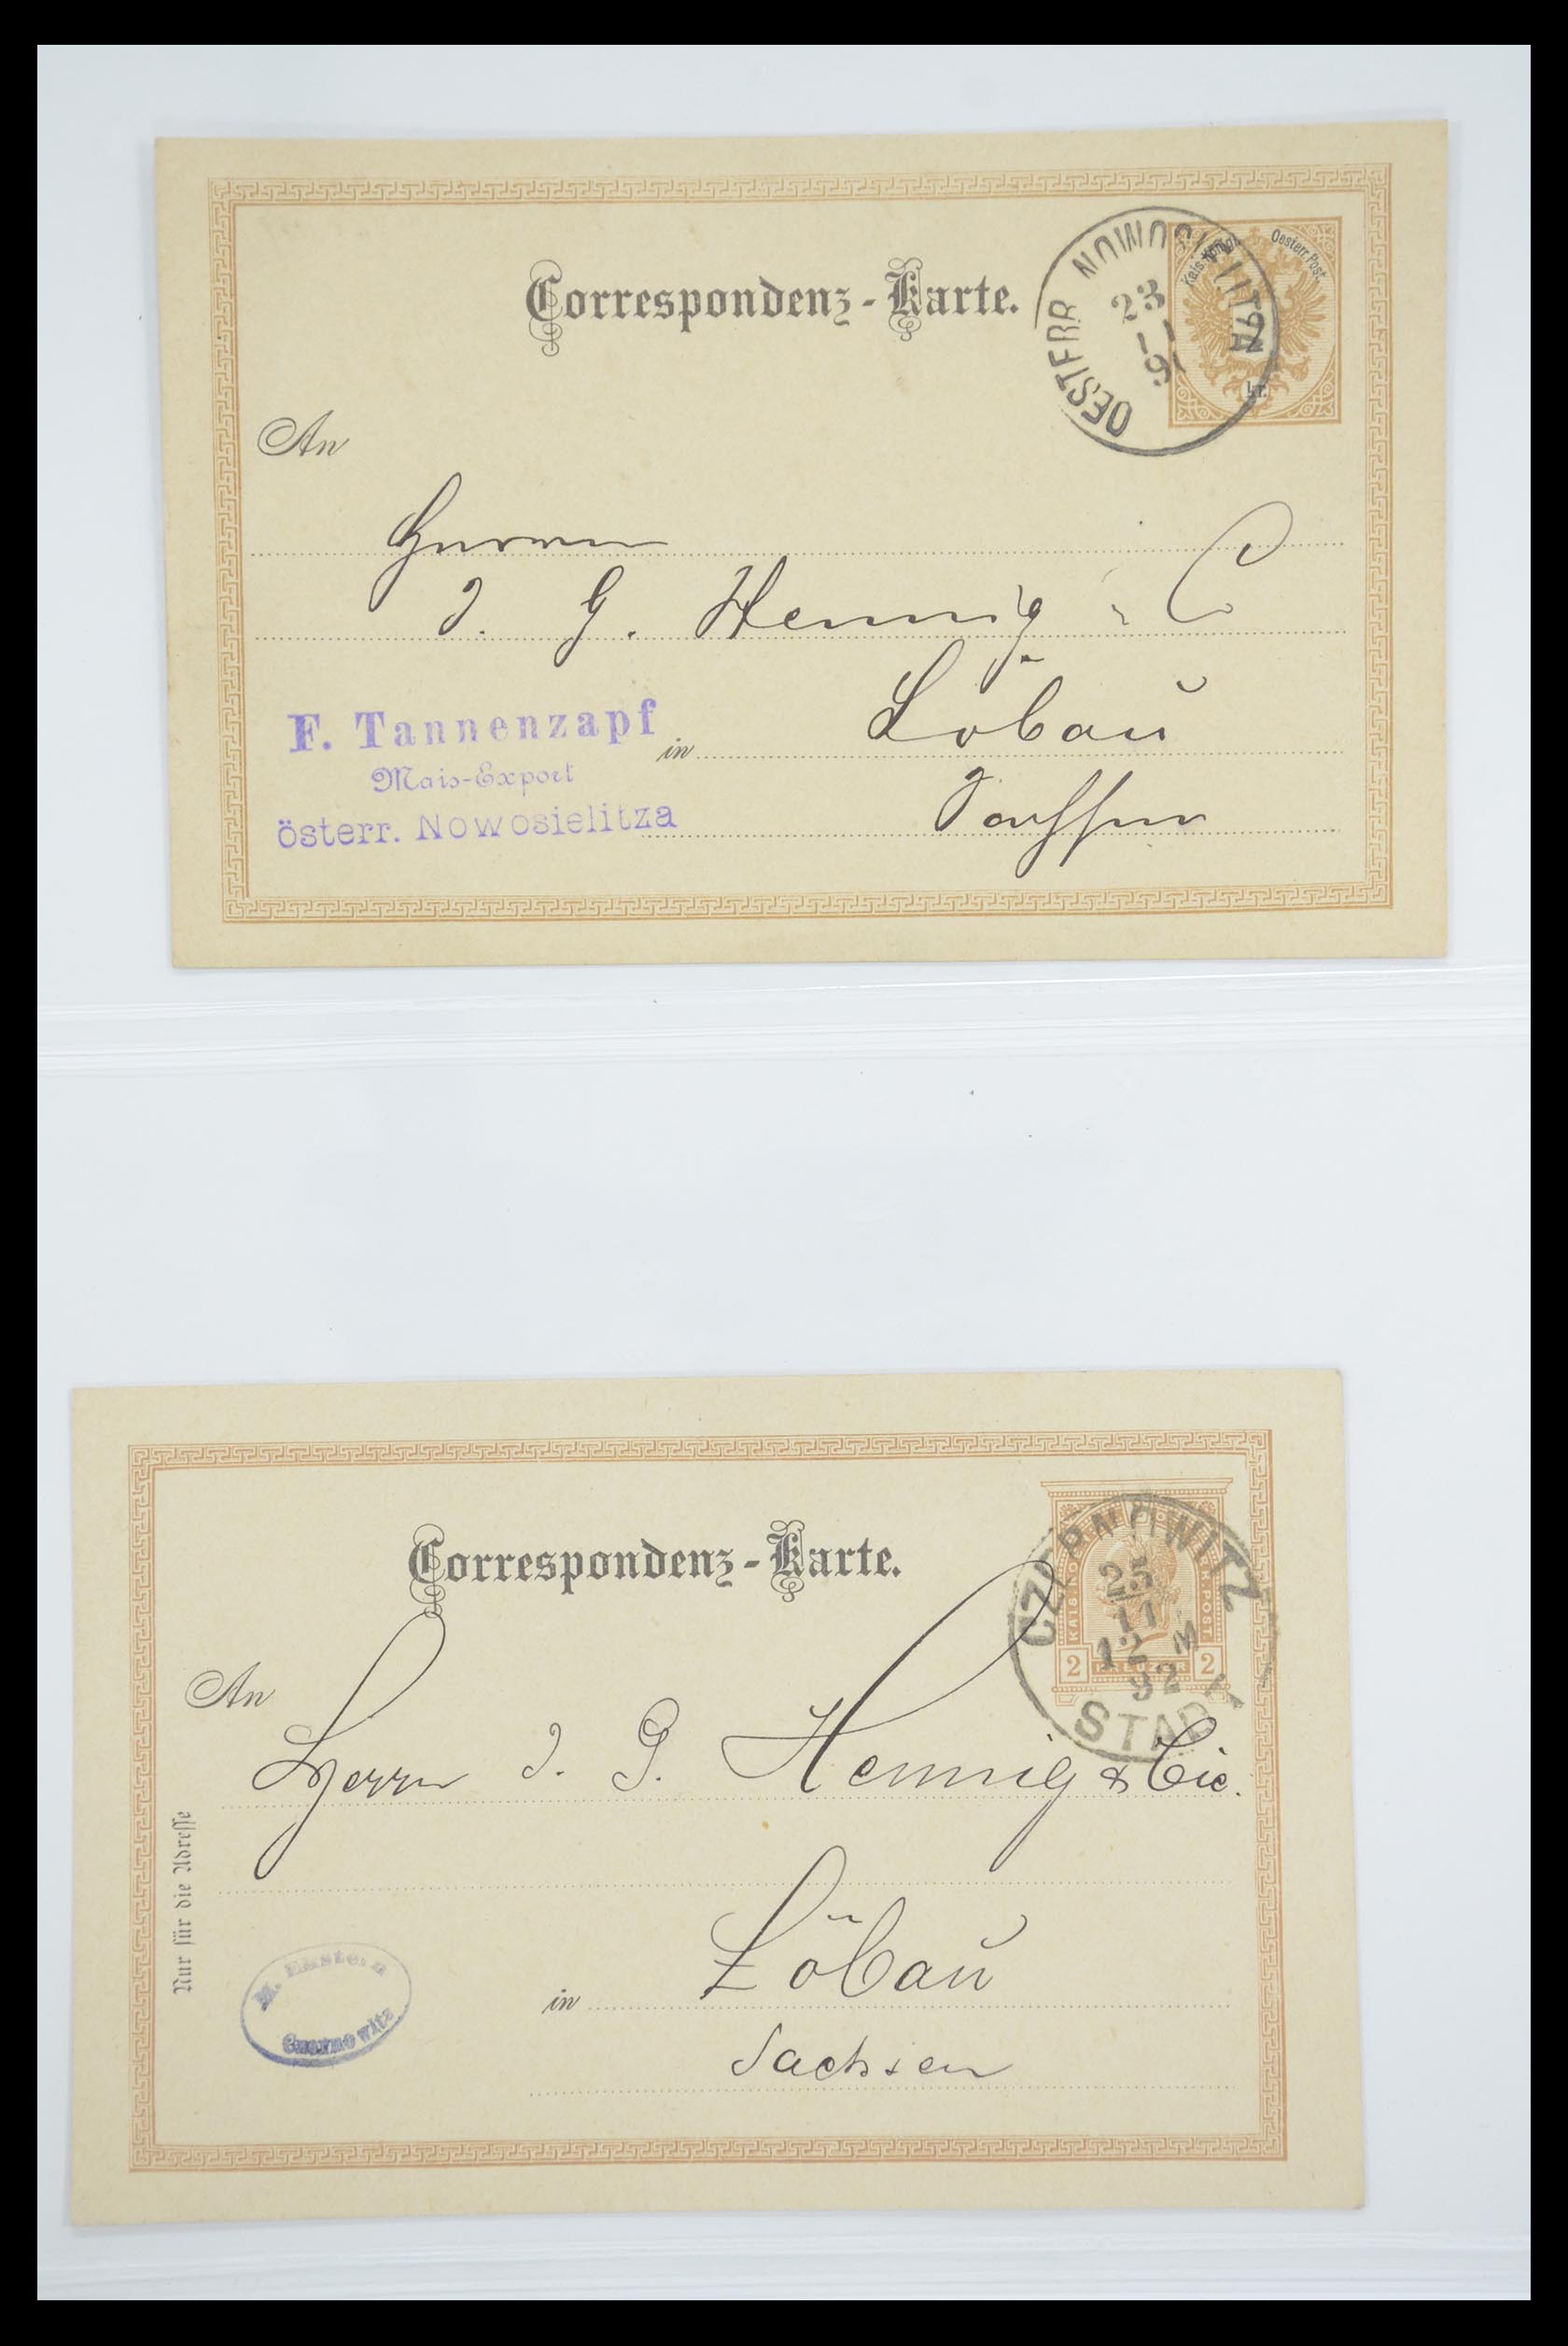 Correspondenz-Karte.
Kais. Königl. Oesterr. Post.
kr.
OESTERR NOWOSIELITZA
23
1
91
An
Herren
J. G. Hennig & C
Löbau
in
Sachsen
F. Tannenzapf
Mais-Export
österr. Nowosielitza
Correspondenz-Karte.
2 KREUZER 2
CZERNOWITZ
25
11
12 M
92
STADT
An
Herrn J. G. Hennig & Cie.
in Löbau
Sachsen
Nur für die Adresse
Czernowitz